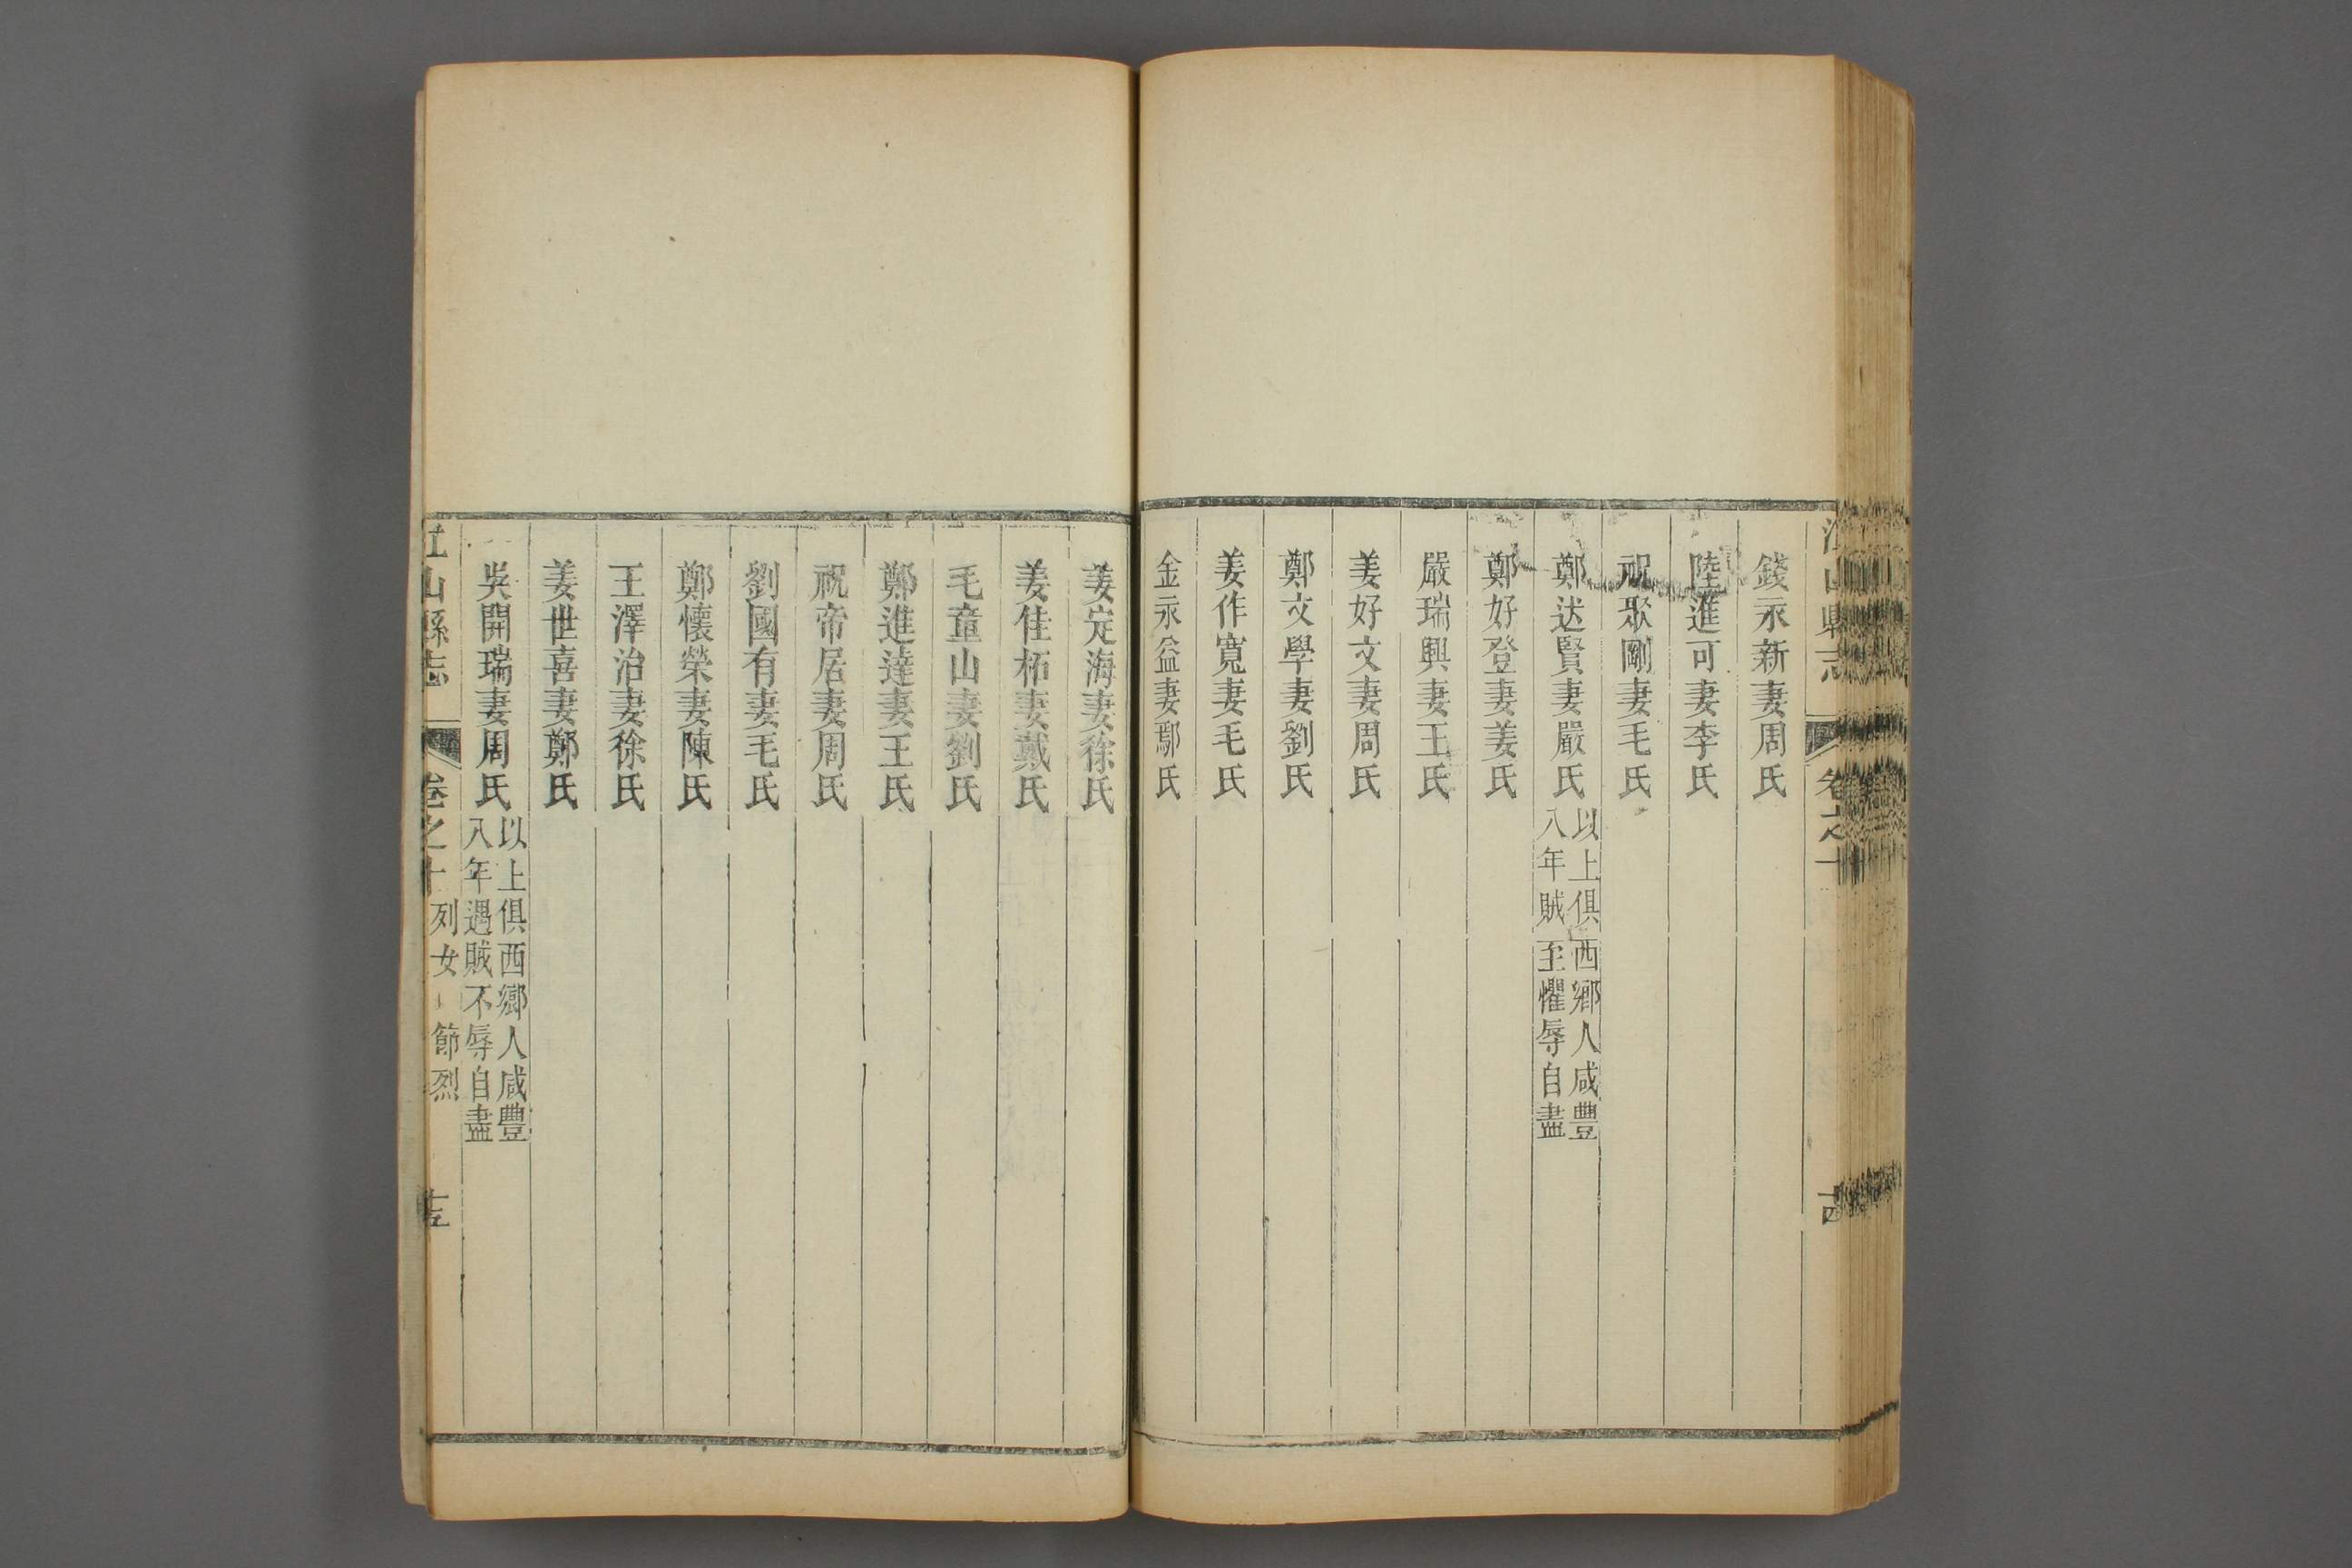 江山縣志 卷之十
錢永新妻周氏
陸進可妻李氏
祝聚剛妻毛氏
鄭送賢妻嚴氏 以上俱西鄉人咸豐
八年賊至懼辱自盡
鄭好登妻姜氏
嚴瑞興妻王氏
姜好文妻周氏
鄭文學妻劉氏
姜作寬妻毛氏
金永益妻鄢氏
姜定海妻徐氏
姜佳柘妻戴氏
毛童山妻劉氏
鄭進達妻王氏
祝帝居妻周氏
劉國有妻毛氏
鄭懷榮妻陳氏
王澤治妻徐氏
姜世喜妻鄭氏
吳開瑞妻周氏 以上俱西鄉人咸豐
八年遇賊不辱自盡
江山縣志 卷之十 列女 節烈